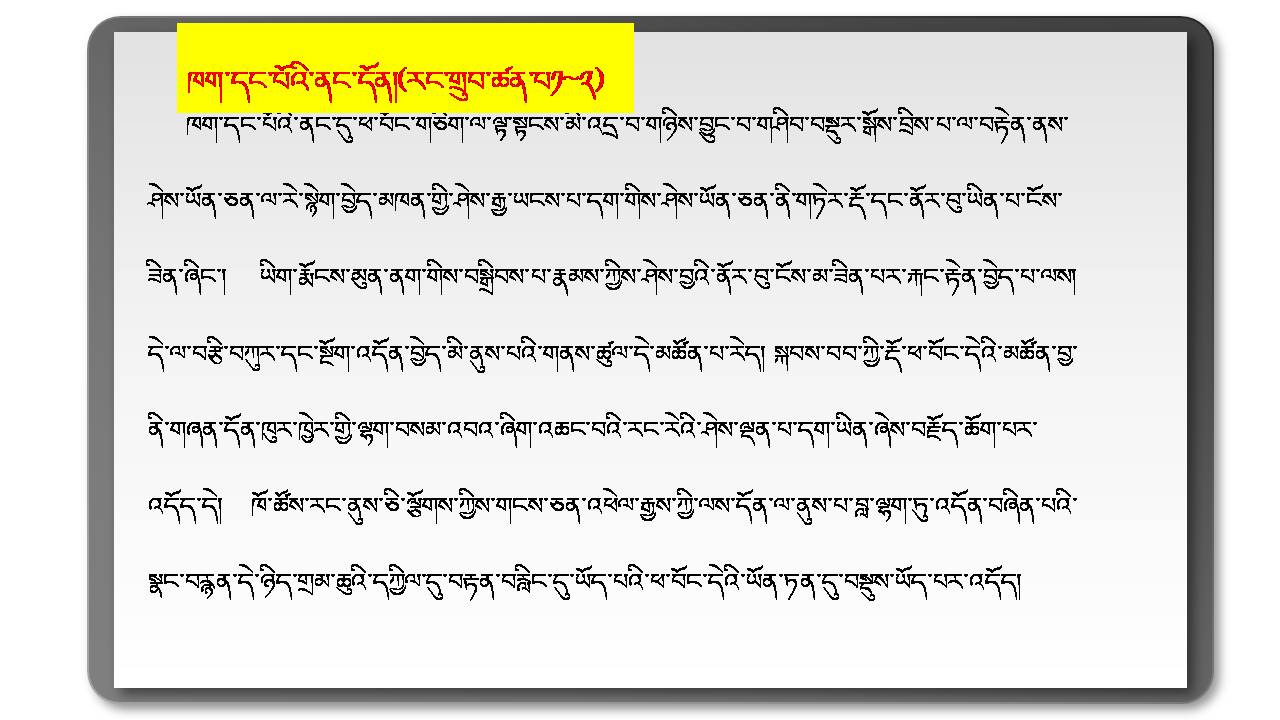 ཁག་དང་པོའི་ནང་དོན།(རང་གྲུབ་ཚན་པ༡~༢)
ཁག་དང་པོའི་ནང་དུ་ཕ་བོང་གཅིག་ལ་ལྟ་སྟངས་མི་འདྲ་བ་གཉིས་བྱུང་བ་གཤིབ་བསྡུར་སྒོས་བྲིས་པ་ལ་བརྟེན་ནས་
ཤེས་ཡོན་ཅན་ལ་རེ་སྙེག་བྱེད་མཁན་གྱི་ཤེས་རྒྱ་ཡངས་པ་དག་གིས་ཤེས་ཡོན་ཅན་ནི་གཏེར་རྡོ་དང་ནོར་བུ་ཡིན་པ་ངོས་
ཟིན་ཞིང་། ཡིག་རྨོངས་མུན་ནག་གིས་བསྒྲིབས་པ་རྣམས་ཀྱིས་ཤེས་བྱའི་ནོར་བུ་ངོས་མ་ཟིན་པར་རྐང་རྟེན་བྱེད་པ་ལས།
དེ་ལ་བརྩི་བཀུར་དང་སྔོག་འདོན་བྱེད་མི་ནུས་པའི་གནས་ཚུལ་དེ་མཚོན་པ་རེད། སྐབས་བབ་ཀྱི་རྡོ་ཕ་བོང་དེའི་མཚོན་བྱ་
ནི་གཞན་དོན་ཁུར་ཁྱེར་གྱི་ལྷག་བསམ་འབའ་ཞིག་འཆང་བའི་རང་རེའི་ཤེས་ལྡན་པ་དག་ཡིན་ཞེས་བརྗོད་ཆོག་པར་
འདོད་དེ། ཁོ་ཚོས་རང་ནུས་ཅི་ལྕོགས་ཀྱིས་གངས་ཅན་འཕེལ་རྒྱས་ཀྱི་ལས་དོན་ལ་ནུས་པ་བླ་ལྷག་ཏུ་འདོན་བཞིན་པའི་
སྣང་བརྙན་དེ་ཉིད་གྲམ་ཆུའི་དཀྱིལ་དུ་བརྟན་བརླིང་དུ་ཡོད་པའི་ཕ་བོང་དེའི་ཡོན་ཏན་དུ་བསྡུས་ཡོད་པར་འདོད།